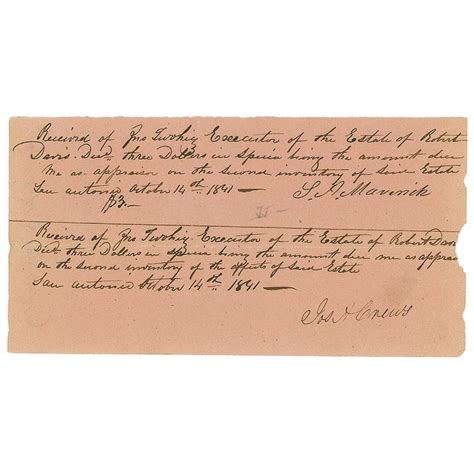 Received of Jno Twohig Executor of the Estate of Robert
Davis Decd three Dollars in Specia being the amount due
me as appraisor on the second inventory of Said Estate
San Antonio October 14th 1841 — S. A. Maverick
$3.—
Received of Jno Twohig Executor of the Estate of Robert Davis
Decd three Dollars in Specia being the amount due me as apprais
on the second inventory of the effects of Said Estate
San Antonio October 14th 1841 —
Jos H Crews